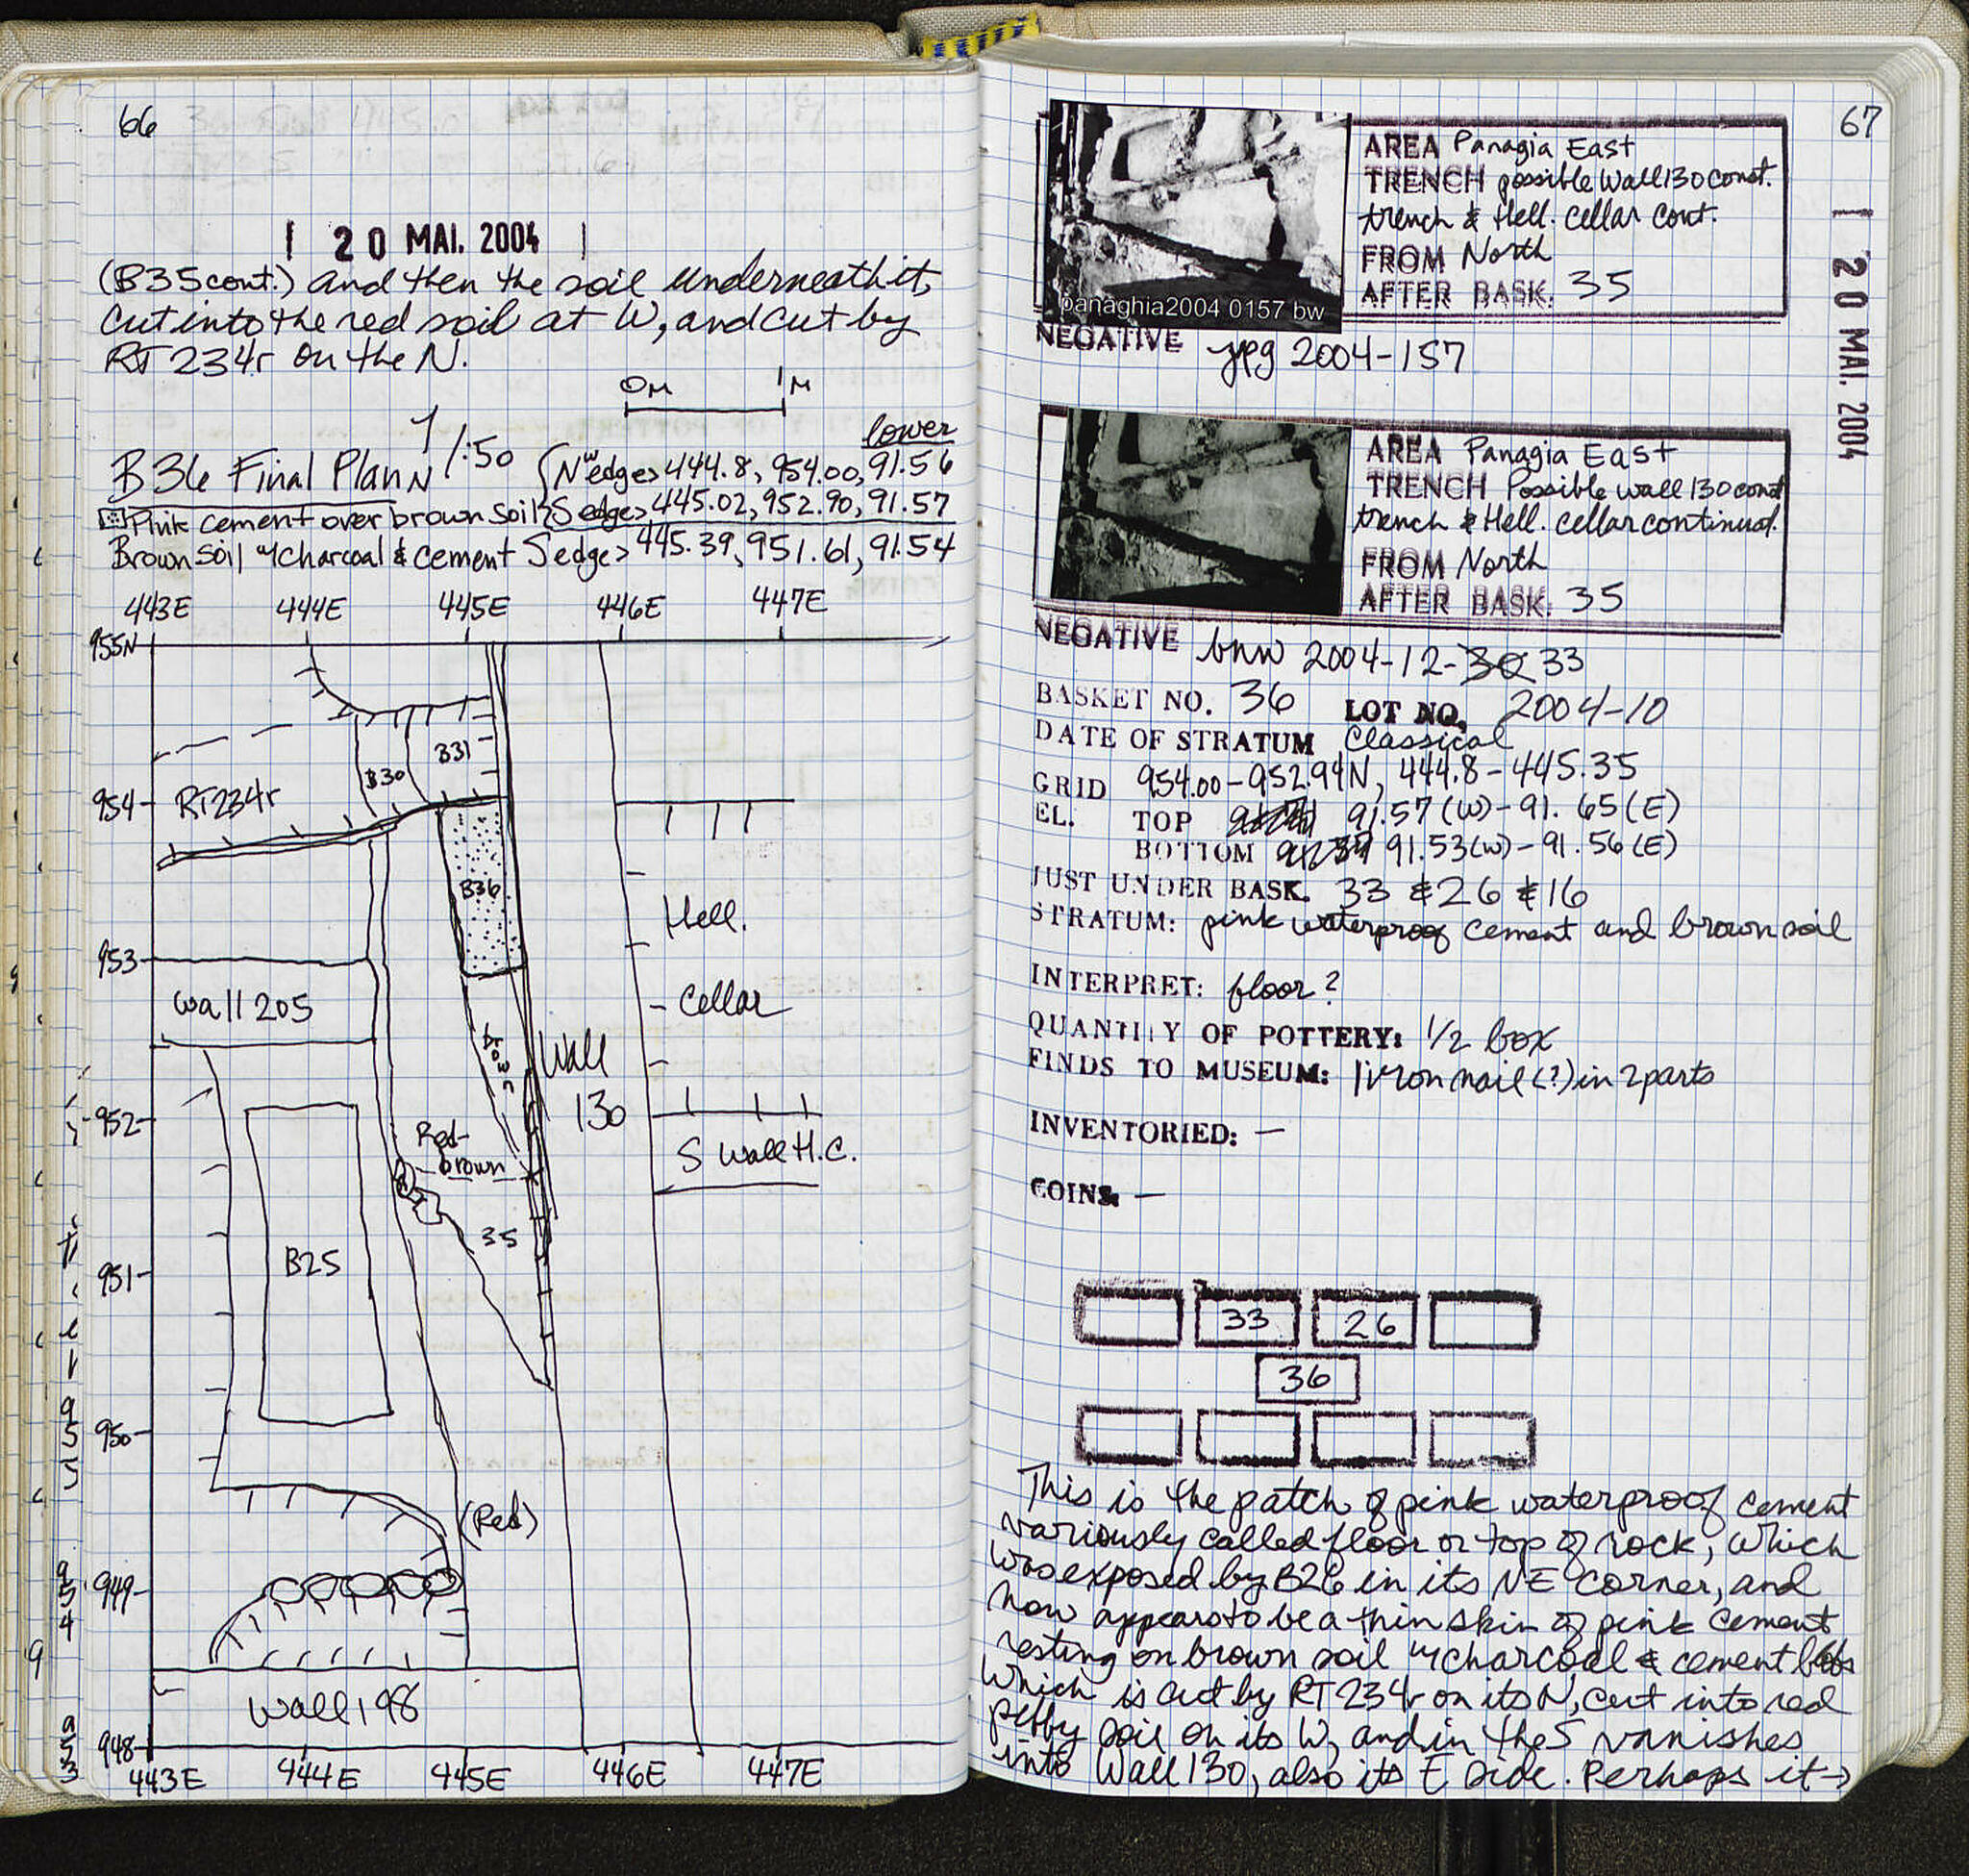 66
20 MAI. 2004
(B35 cont.) and then the soil underneath it,
cut into the red soil at W, and cut by
RT 234r on the N.
0M 1M
B36 Final Plan N 1:50
lower
NW edge> 444.8, 954.00, 91.56
Pink cement over brown soil S edge> 445.02, 952.90, 91.57
Brown soil w/ charcoal & cement S edge> 445.39, 951.61, 91.54
443E 444E 445E 446E 447E
955N
B31
B30
RT234r
954
B36
Hell.
953
Wall 205
Cellar
brown
Wall
130
952
Red-
brown
S Wall H.C.
35
B25
951
950
(Red)
949
Wall 198
948
443E 444E 445E 446E 447E
67
20 MAI. 2004
panaghia2004 0157 bw
AREA Panagia East
TRENCH possible Wall 130 const.
trench & Hell. cellar cont.
FROM North
AFTER BASK. 35
NEGATIVE jpg 2004-157
AREA Panagia East
TRENCH Possible wall 130 const
trench & Hell. cellar continued.
FROM North
AFTER BASK. 35
NEGATIVE bnw 2004-12-30 33
BASKET NO. 36 LOT NO. 2004-10
DATE OF STRATUM Classical
GRID 954.00-952.94N, 444.8-445.35
EL. TOP 91.57(W)-91.65(E)
BOTTOM 91.53(W)-91.56(E)
JUST UNDER BASK. 33 & 26 & 16
STRATUM: pink waterproof cement and brown soil
INTERPRET: floor?
QUANTITY OF POTTERY: 1/2 box
FINDS TO MUSEUM: 1 iron nail(?) in 2 parts
INVENTORIED: —
COINS. —
33 26
36
This is the patch of pink waterproof cement
variously called floor or top of rock, which
was exposed by B26 in its NE corner, and
now appears to be a thin skin of pink cement
resting on brown soil w/ charcoal & cement
which is cut by RT234r on its N, cut into red
pebbly soil on its W, and in the S vanishes
into Wall 130, also its E side. Perhaps it→